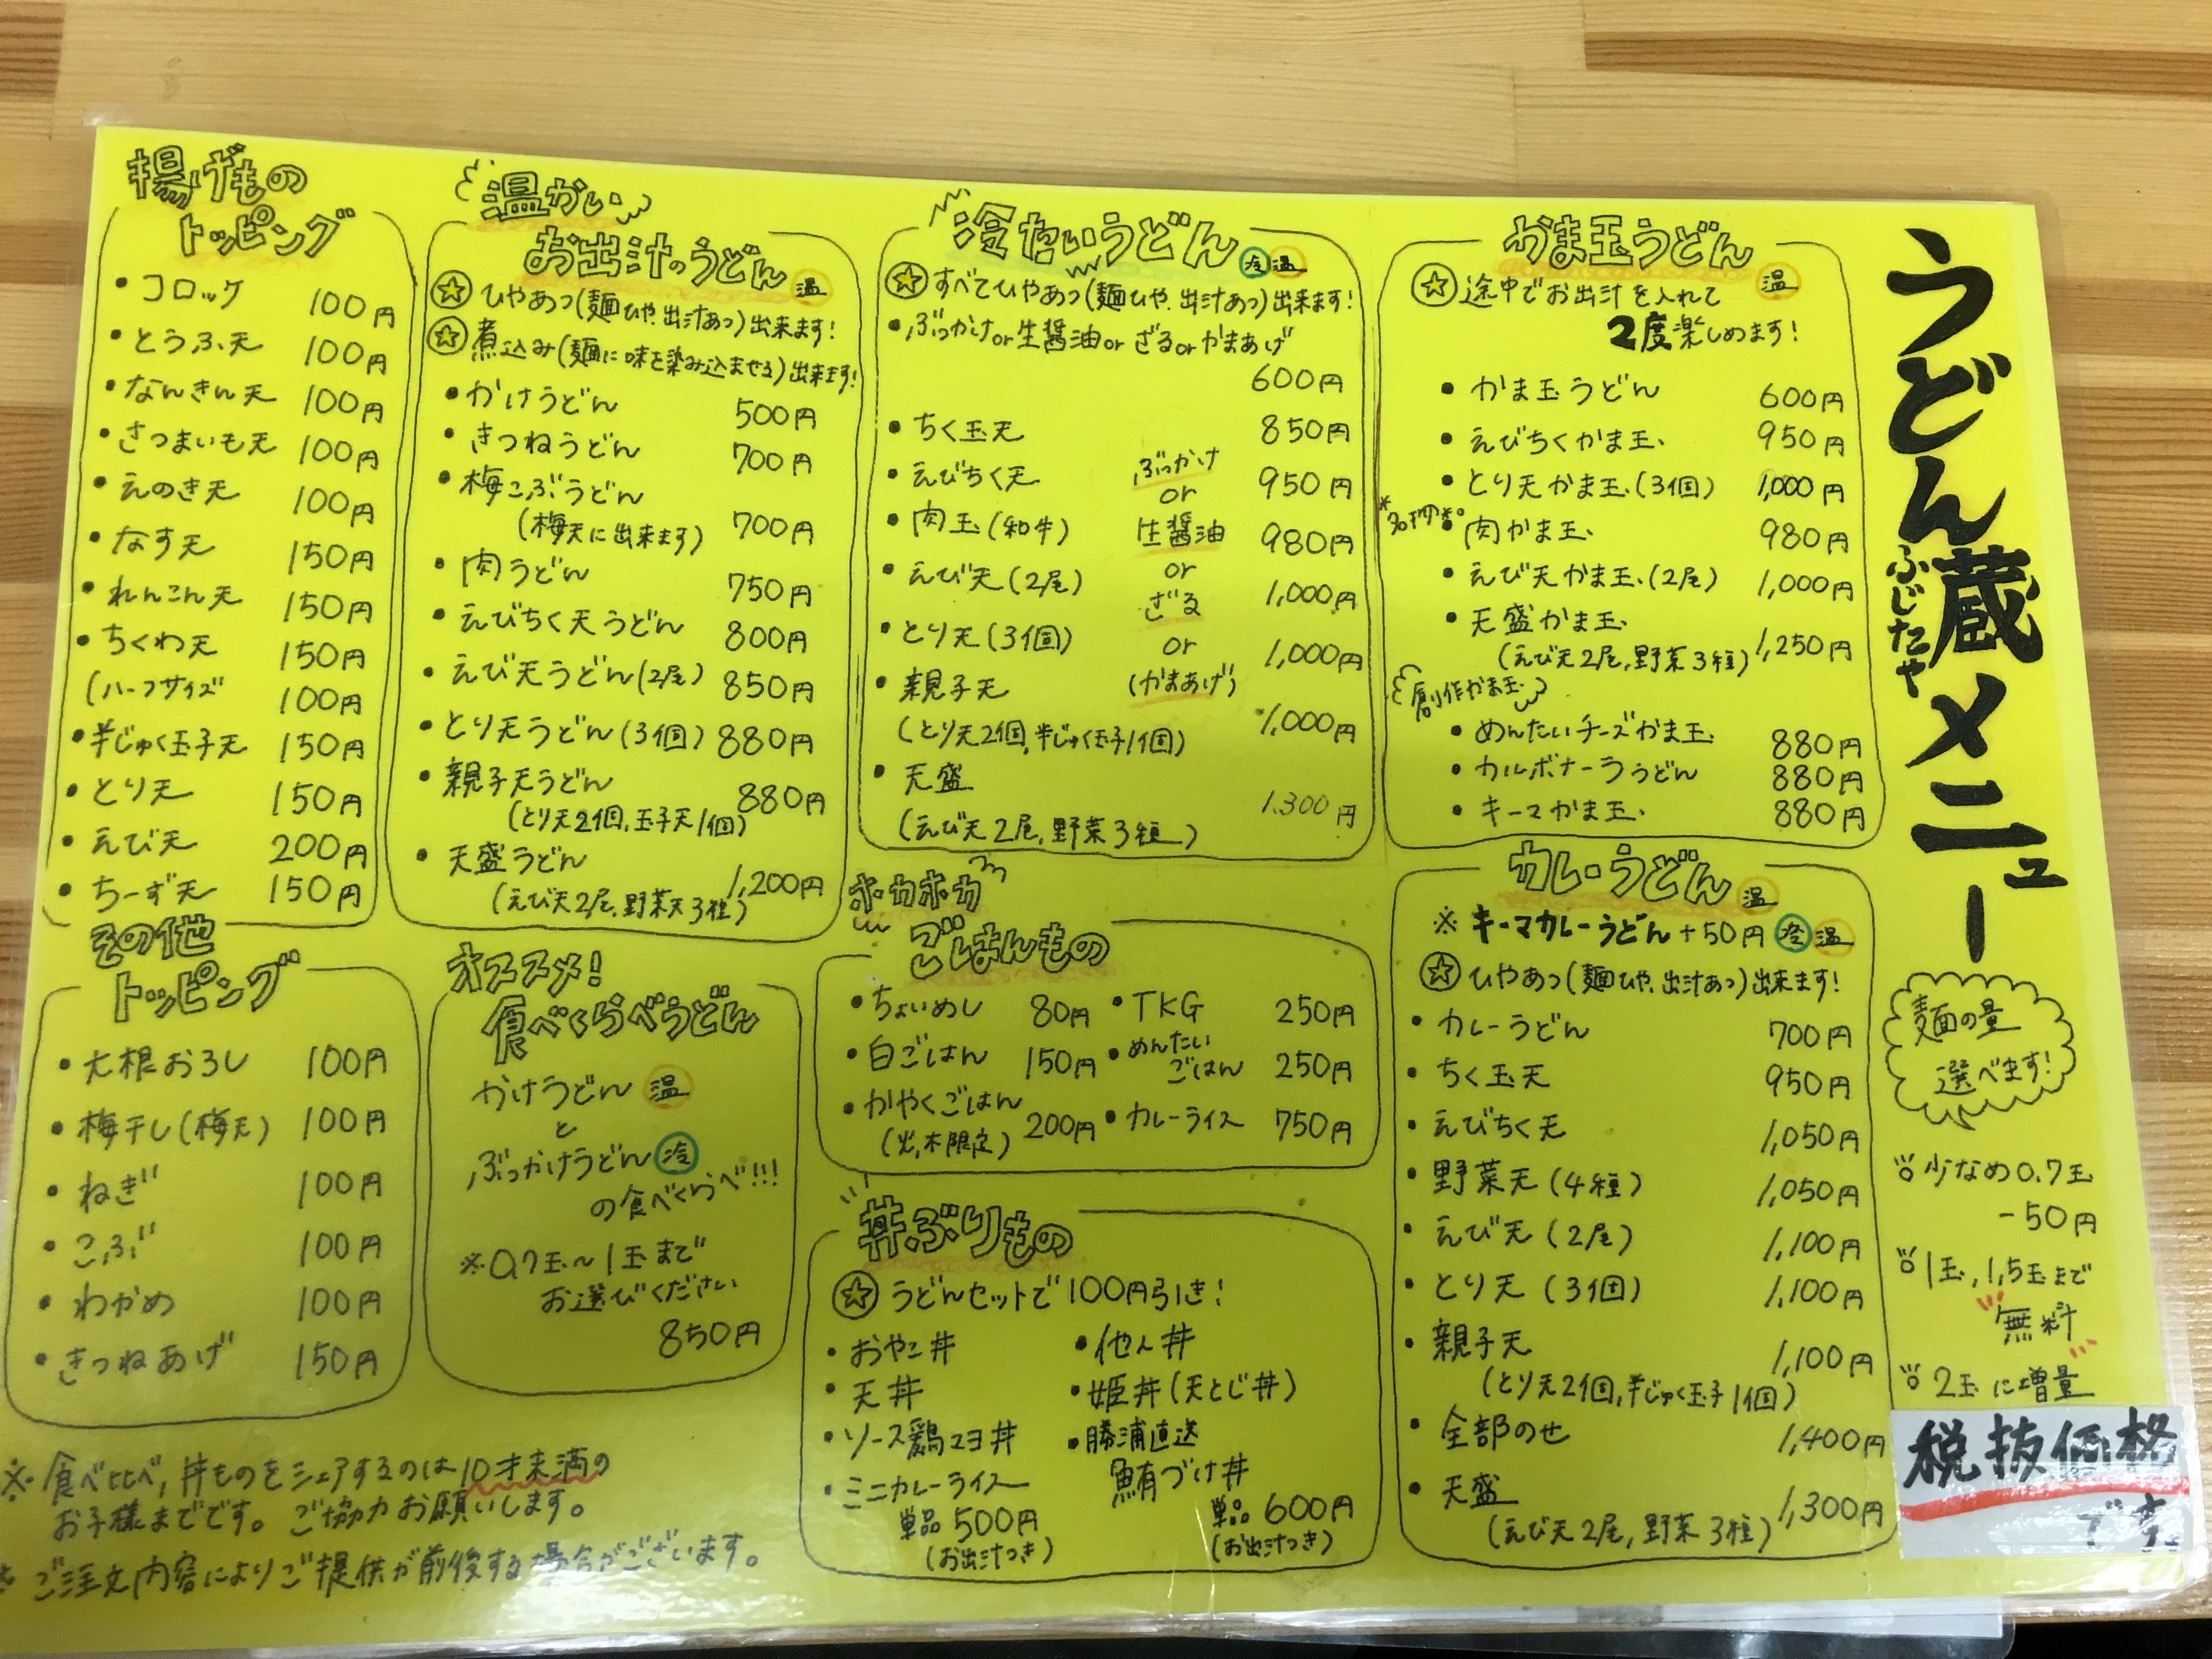 うどん蔵ふじたやメニュー
麺の量
選べます!
少なめ0.7玉
-50円
1玉,1,5玉まで
無料
2玉に増量
税抜価格
です
かま玉うどん
☆途中でお出汁を入れて 温
2度楽しめます!
・かま玉うどん 600円
・えびちくかま玉 950円
・とり天かま玉(3個) 1,000円
・肉かま玉 980円
・えび天かま玉(2尾) 1,000円
・天盛かま玉
(えび天2尾,野菜3種) 1,250円
創作かま玉
・めんたいチーズかま玉 880円
・カルボナーラうどん 880円
・キーマかま玉 880円
カレーうどん 温
※キーマカレーうどん+50円 冷 温
☆ひやあつ(麺ひや、出汁あつ)出来ます!
・カレーうどん 700円
・ちく玉天 950円
・えびちく天 1,050円
・野菜天(4種) 1,050円
・えび天(2尾) 1,100円
・とり天(3個) 1,100円
・親子天 1,100円
(とり天2個,半じゅく玉子1個)
・全部のせ 1,400円
・天盛 1,300円
(えび天2尾,野菜3種)
冷たいうどん 冷 温
☆すべてひやあつ(麺ひや、出汁あつ)出来ます!
・ぶっかけor生醤油orざるorかまあげ
600円
・ちく玉天 850円
・えびちく天 950円
・肉玉(和牛) 980円
・えび天(2尾) 1,000円
・とり天(3個) 1,000円
・親子天 1,000円
(とり天2個,半じゅく玉子1個)
・天盛 1.300円
(えび天2尾,野菜3種)
ぶっかけ
or
生醤油
or
ざる
or
(かまあげ)
ホカホカ
ごはんもの
・ちょいめし 80円
・白ごはん 150円
・かやくごはん 200円
・TKG 250円
・めんたい
ごはん 250円
・カレーライス 750円
丼ぶりもの
☆うどんセットで100円引き!
・おやこ丼
・天丼
・ソース鶏マヨ丼
・ミニカレーライス
単品500円
(お出汁つき)
・他人丼
・姫丼(天とじ丼)
・勝浦直送
鮪づけ丼
単品600円
(お出汁つき)
温かい
お出汁のうどん 温
☆ひやあつ(麺ひや、出汁あつ)出来ます!
☆煮込み(麺に味を染み込ませる)出来ます!
・かけうどん 500円
・きつねうどん 700円
・梅こぶうどん
(梅天に出来ます) 700円
・肉うどん 750円
・えびちく天うどん 800円
・えび天うどん(2尾) 850円
・とり天うどん(3個) 880円
・親子天うどん 880円
(とり天2個,玉子天1個)
・天盛うどん 1,200円
(えび天2尾,野菜天3種)
オススメ!
食べくらべうどん
かけうどん 温
と
ぶっかけうどん 冷
の食べくらべ!!!
※0.7玉~1玉まで
お選びください
850円
揚げもの
トッピング
・コロッケ 100円
・とうふ天 100円
・なんきん天 100円
・さつまいも天 100円
・えのき天 100円
・なす天 150円
・れんこん天 150円
・ちくわ天 150円
(ハーフサイズ 100円
・半じゅく玉子天 150円
・とり天 150円
・えび天 200円
・ちーず天 150円
その他
トッピング
・大根おろし 100円
・梅干し(梅天) 100円
・ねぎ 100円
・こぶ 100円
・わかめ 100円
・きつねあげ 150円
※食べ比べ,丼ものをシェアするのは10才未満の
お子様までです。ご協力お願いします。
※ご注文内容によりご提供が前後する場合がございます。